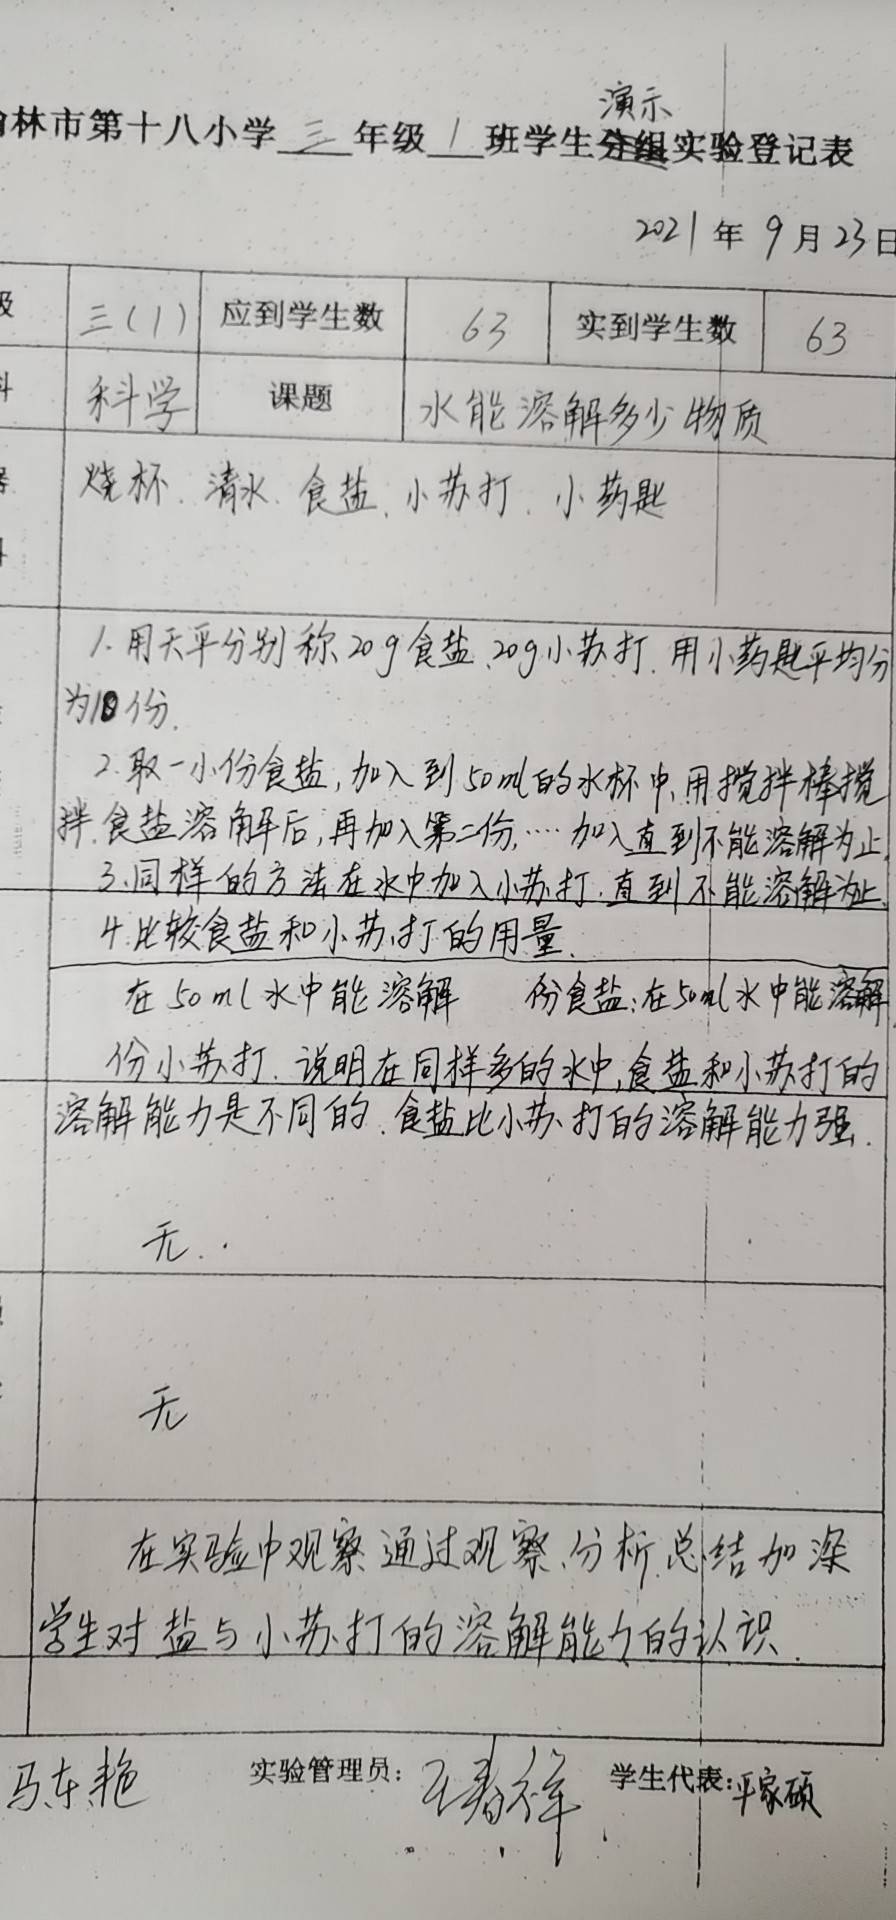 演示
林市第十八小学三年级1班学生分组实验登记表
2021年9月23日
级 三(1) 应到学生数 63 实到学生数 63
科 科学 课题 水能溶解多少物质
烧杯、清水、食盐、小苏打、小药匙
1.用天平分别称20g食盐、20g小苏打.用小药匙平均分
为10份.
2.取一小份食盐,加入到50ml的水杯中,用搅拌棒搅
拌.食盐溶解后,再加入第二份,……加入直到不能溶解为止.
3.同样的方法在水中加入小苏打.直到不能溶解为止.
4.比较食盐和小苏打的用量.
在50ml水中能溶解 份食盐;在50ml水中能溶解
份小苏打.说明在同样多的水中,食盐和小苏打的
溶解能力是不同的.食盐比小苏打的溶解能力强.
无.
无
在实验中观察通过观察、分析总结加深
学生对盐与小苏打的溶解能力的认识.
马东艳 实验管理员: 学生代表:平家硕